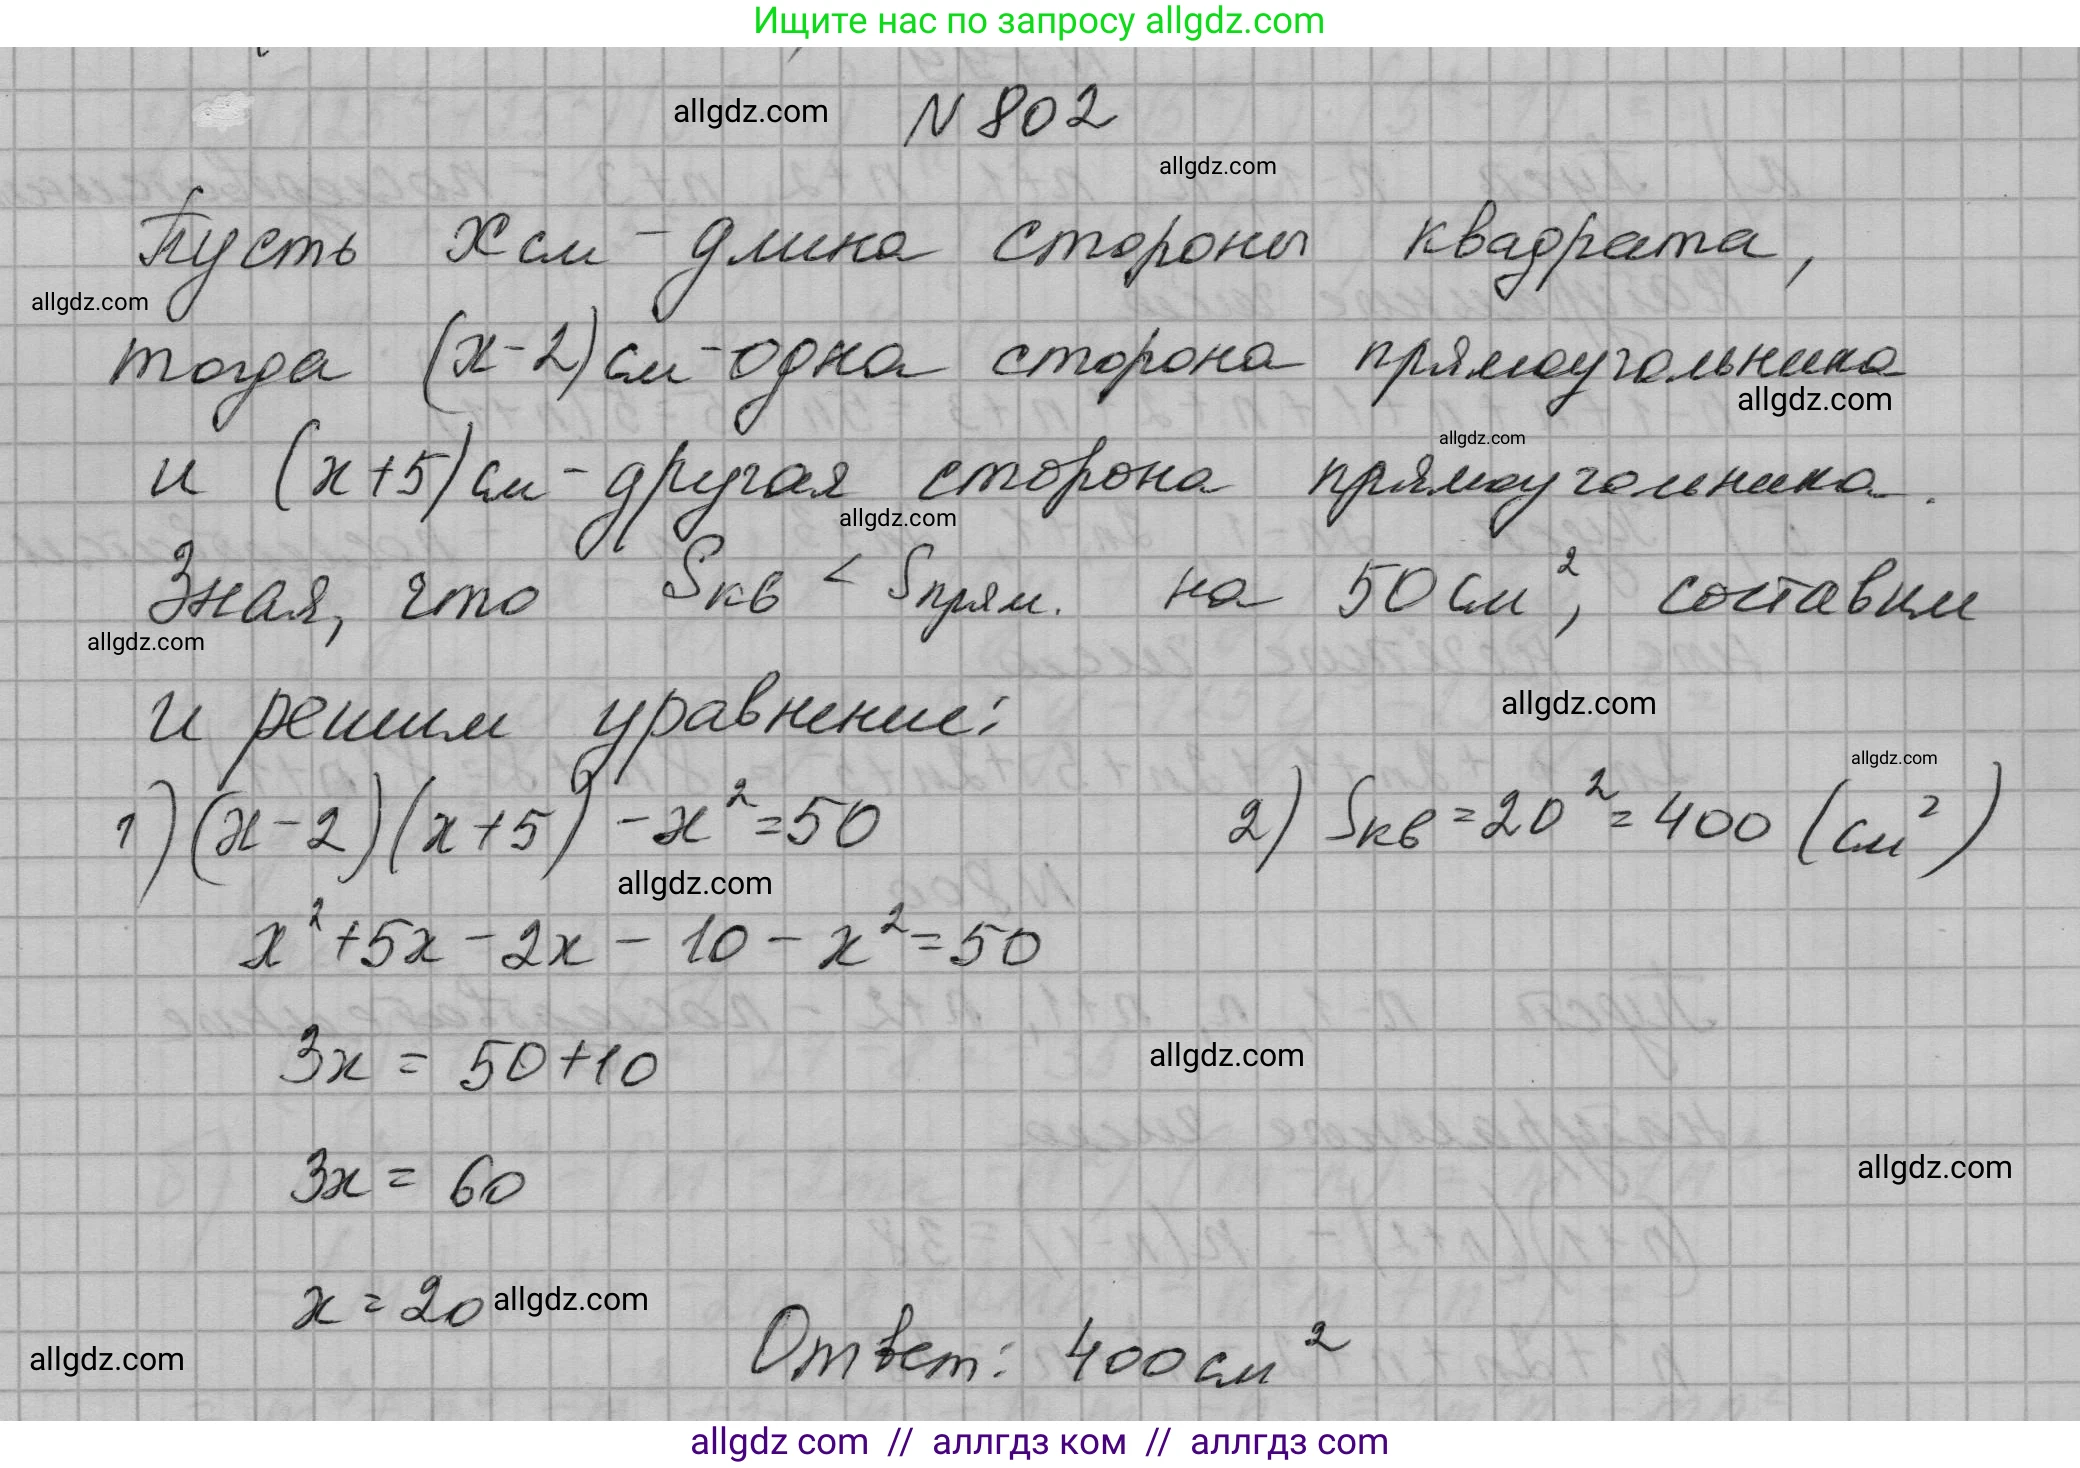 Ищите нас по запросу allgdz.com
allgdz.com N 802
allgdz.com
Пусть x см - длина стороны квадрата,
allgdz.com
тогда (x-2) см - одна сторона прямоугольника
allgdz.com
allgdz.com
и (x+5) см - другая сторона прямоугольника.
allgdz.com
Зная, что Sкв < Sпрям. на 50 см², составим
allgdz.com
и решим уравнение:
allgdz.com
allgdz.com
1) (x-2)(x+5) - x² = 50 2) Sкв = 20² = 400 (см²)
allgdz.com
x² + 5x - 2x - 10 - x² = 50
3x = 50 + 10
allgdz.com
3x = 60
allgdz.com
x = 20 allgdz.com
allgdz.com
Ответ: 400 см²
allgdz com // аллгдз ком // аллгдз com